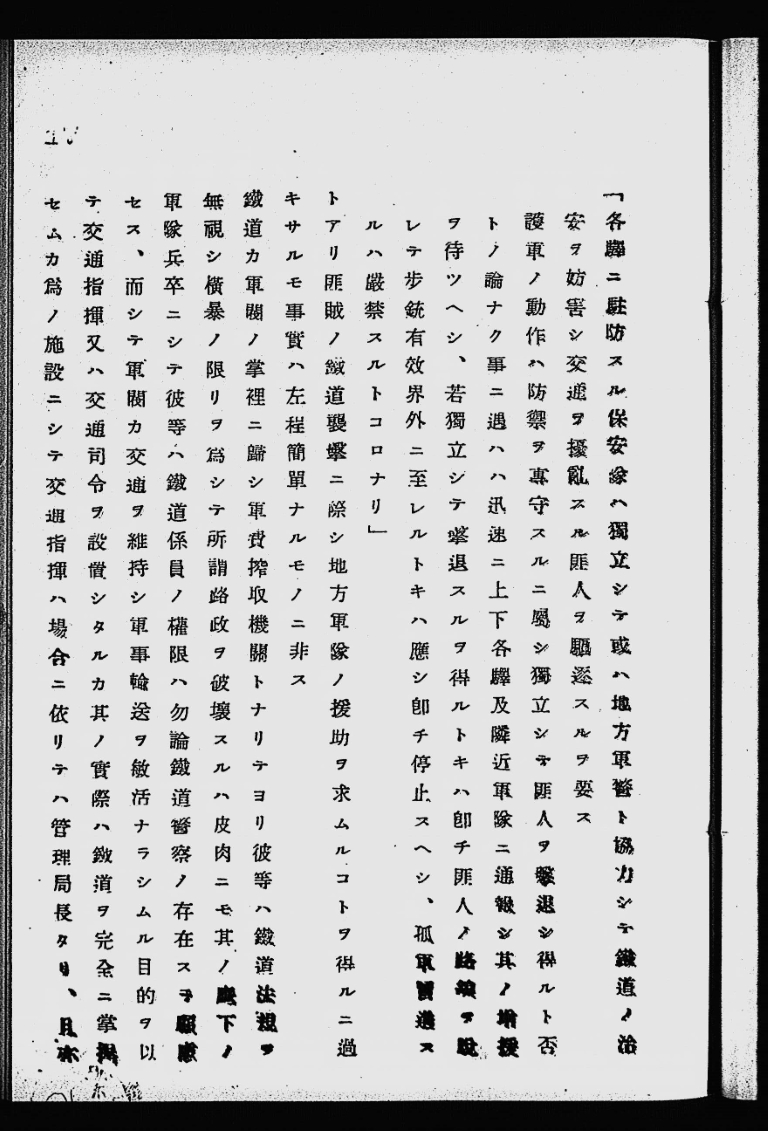 「各驛ニ駐防スル保安隊ハ獨立シテ或ハ地方軍警ト協力シテ鐵道ノ治
安ヲ妨害シ交通ヲ擾亂スル匪人ヲ驅逐スルヲ要ス
護軍ノ動作ハ防禦ヲ專守スルニ屬シ獨立シテ匪人ヲ擊退シ得ルト否
トノ論ナク事ニ遇ハハ迅速ニ上下各驛及隣近軍隊ニ通報シ其ノ增援
ヲ待ツヘシ、若獨立シテ擊退スルヲ得ルトキハ卽チ匪人ノ路線ヲ脫
レテ步銃有效界外ニ至レルトキハ應シ卽チ停止スヘシ、孤軍冒進ス
ルハ嚴禁スルトコロナリ」
トアリ匪賊ノ鐵道襲擊ニ際シ地方軍隊ノ援助ヲ求ムルコトヲ得ルニ過
キサルモ事實ハ左程簡單ナルモノニ非ス
鐵道カ軍閥ノ掌裡ニ歸シ軍費搾取機關トナリテヨリ彼等ハ鐵道法規ヲ
無視シ橫暴ノ限リヲ爲シテ所謂路政ヲ破壞スルハ皮肉ニモ其ノ麾下ノ
軍隊兵卒ニシテ彼等ハ鐵道係員ノ權限ハ勿論鐵道警察ノ存在スラ顧慮
セス、而シテ軍閥カ交通ヲ維持シ軍事輸送ヲ敏活ナラシムル目的ヲ以
テ交通指揮又ハ交通司令ヲ設置シタルカ其ノ實際ハ鐵道ヲ完全ニ掌握
セムカ爲ノ施設ニシテ交通指揮ハ場合ニ依リテハ管理局長タリ、且亦